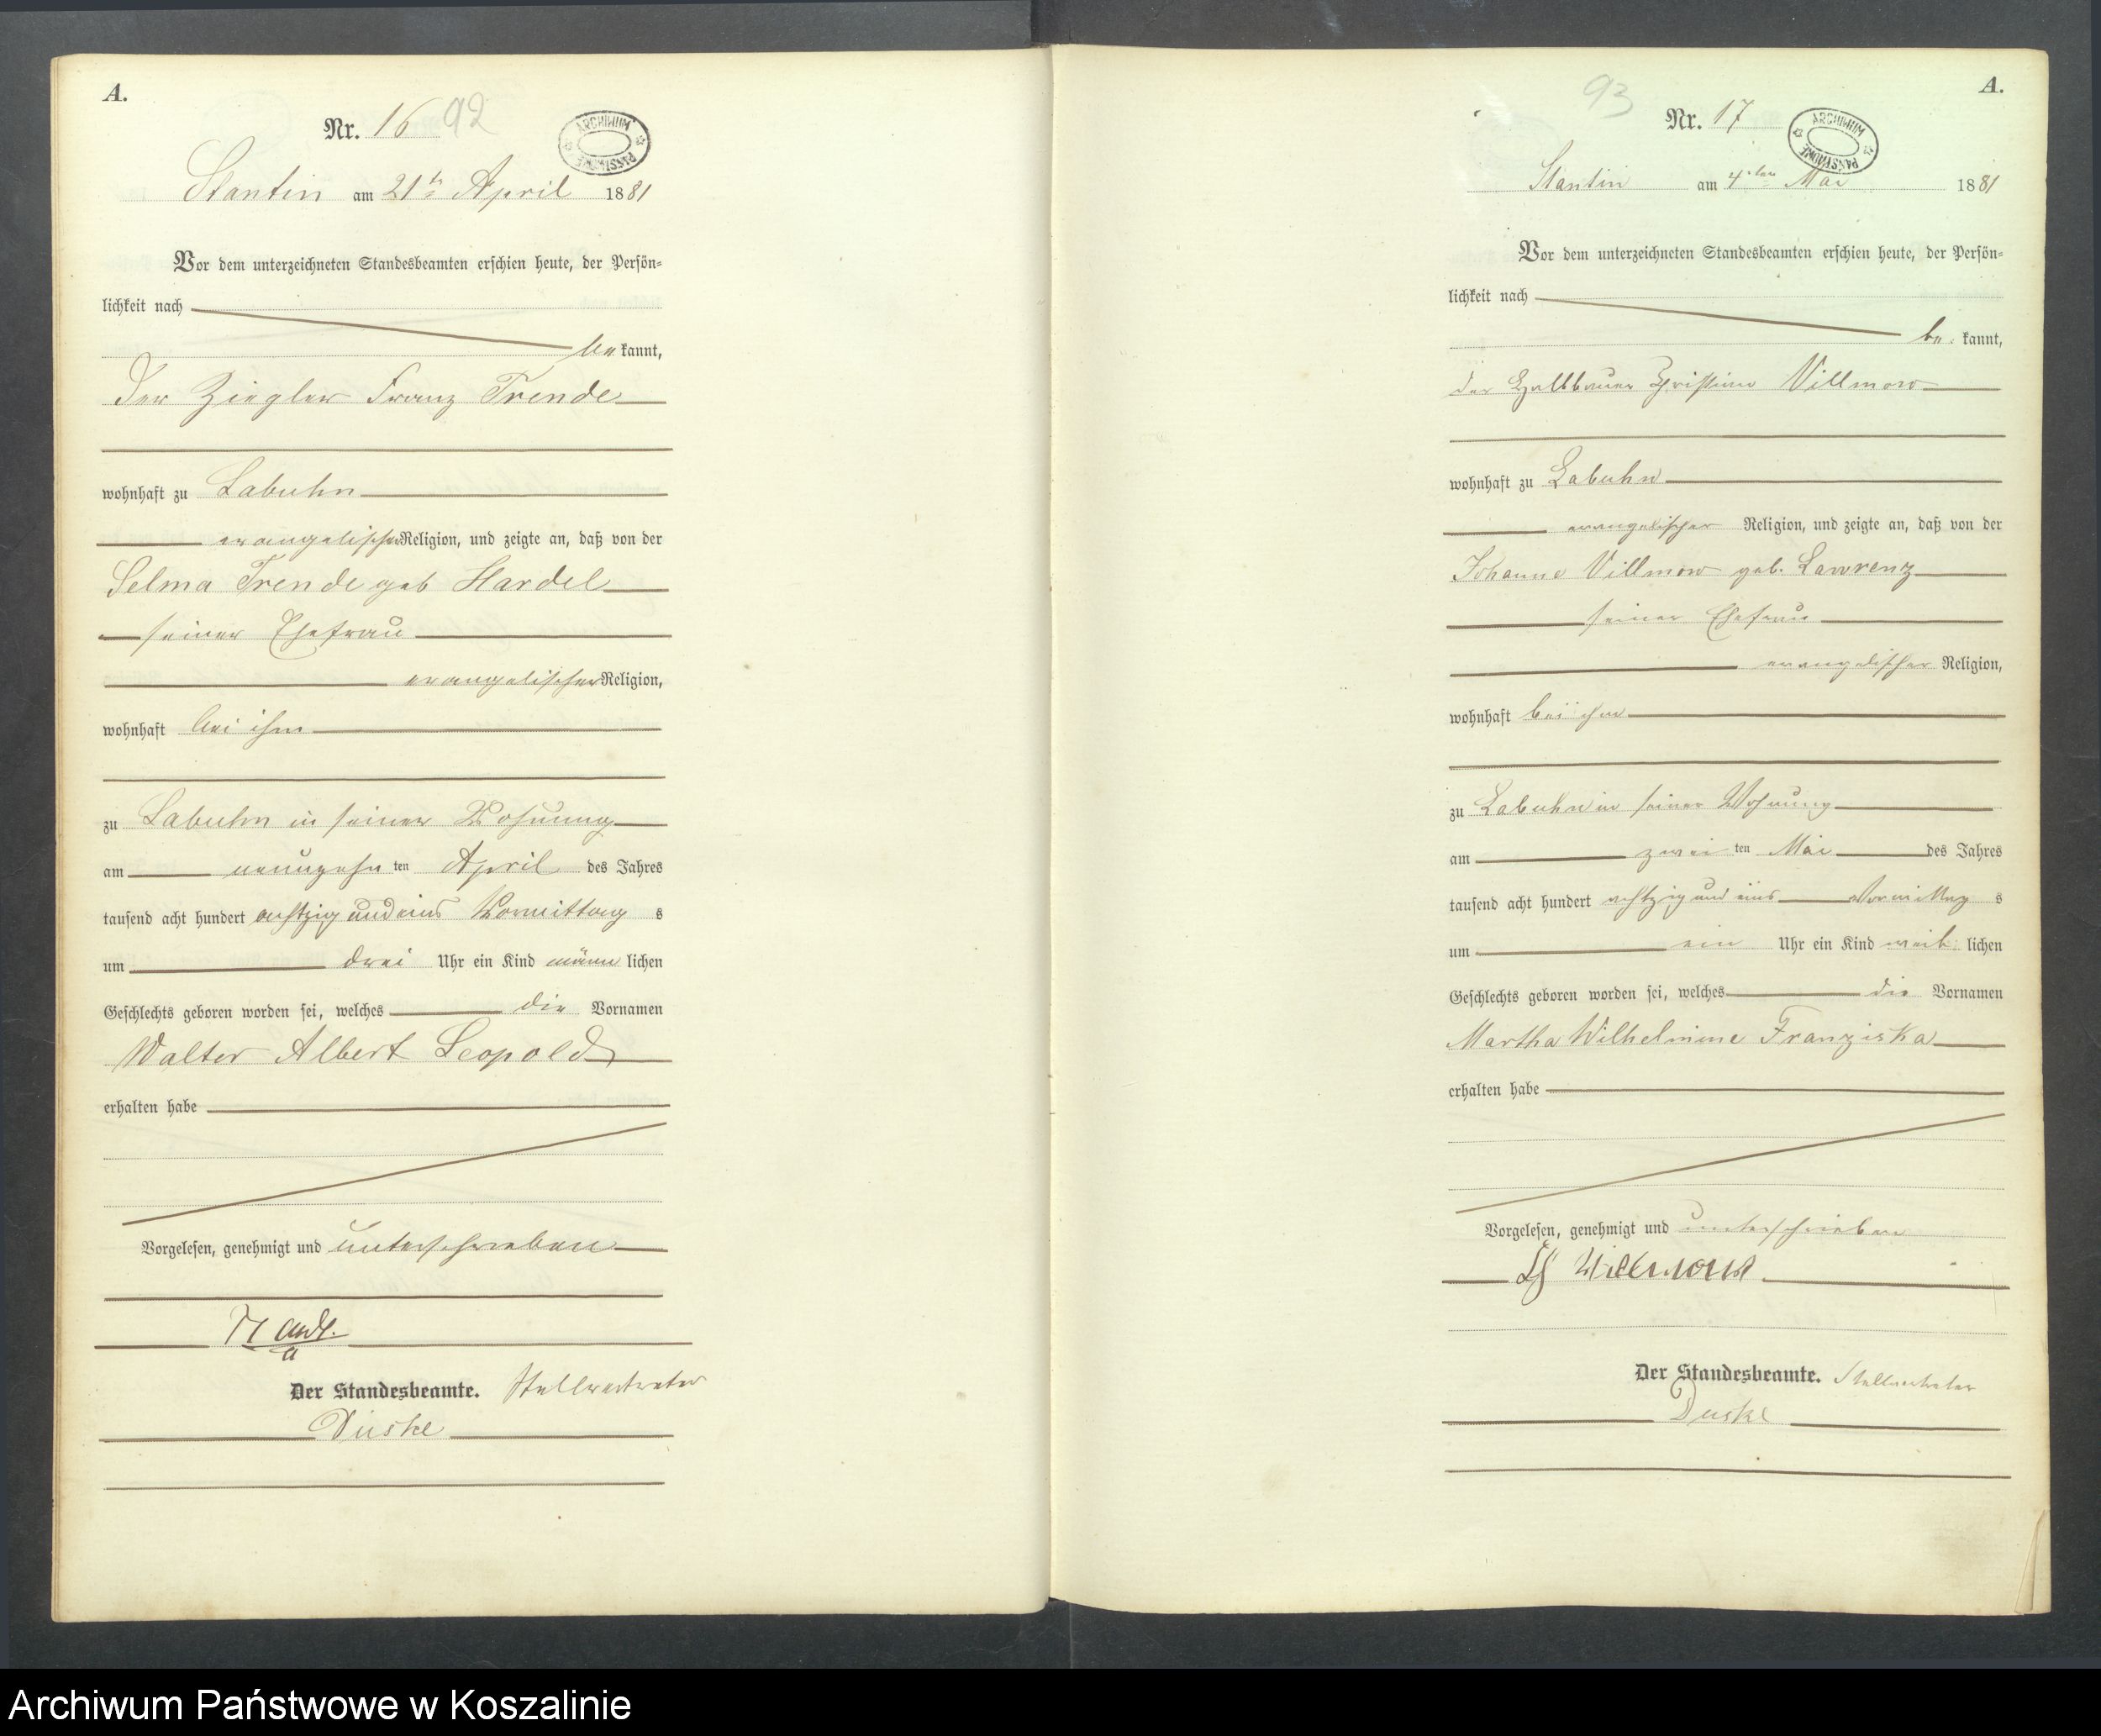 A.
Nr. 16 92
ARCHIWUM PAŃSTWOWE
Stantin am 21t April 1881
Vor dem unterzeichneten Standesbeamten erschien heute, der Persön-
lichkeit nach
be kannt,
der Ziegler Franz Trende
wohnhaft zu Labuhn
evangelischer Religion, und zeigte an, daß von der
Selma Trende geb Hardel
seiner Ehefrau
evangelischer Religion,
wohnhaft bei ihm
zu Labuhn in seiner Wohnung
am neunzehn ten April des Jahres
tausend acht hundert achtzig und eins Vormittag s
um drei Uhr ein Kind männ lichen
Geschlechts geboren worden sei, welches die Vornamen
Walter Albert Leopold
erhalten habe
Vorgelesen, genehmigt und unterschrieben
Der Standesbeamte. Stellvertreter
Duske
A.
93
Nr. 17
ARCHIWUM PAŃSTWOWE
Stantin am 4ten Mai 1881
Vor dem unterzeichneten Standesbeamten erschien heute, der Persön-
lichkeit nach
be kannt,
der Halbbauer Christian Villmow
wohnhaft zu Labuhn
evangelischer Religion, und zeigte an, daß von der
Johanne Villmow geb. Lawrenz
seiner Ehefrau
evangelischer Religion,
wohnhaft bei ihm
zu Labuhn in seiner Wohnung
am zwei ten Mai des Jahres
tausend acht hundert achtzig und eins Vormittag s
um ein Uhr ein Kind weib lichen
Geschlechts geboren worden sei, welches die Vornamen
Martha Wilhelmine Franziska
erhalten habe
Vorgelesen, genehmigt und unterschrieben
Der Standesbeamte. Stellvertreter
Duske
Archiwum Państwowe w Koszalinie